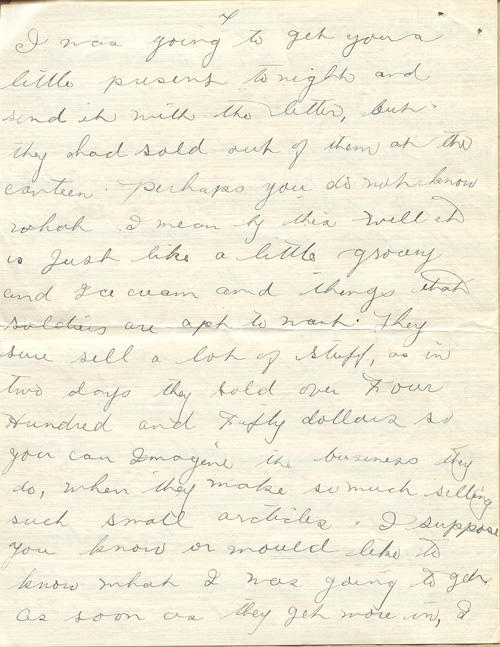 4
I was going to get you a
little present tonight and
send it with the letter, but
they had sold out of them at the
canteen. Perhaps you do not know
what I mean by this well it
is Just like a little grocery
and Ice cream and things that
soldiers are apt to want. They
sure sell a lot of stuff, as in
two days they sold over Four
Hundred and Fifty dollars so
you can Imagine the business they
do, when they make so much selling
such small articles. I suppose
you know or would like to
know what I was going to get
as soon as they get more in, I